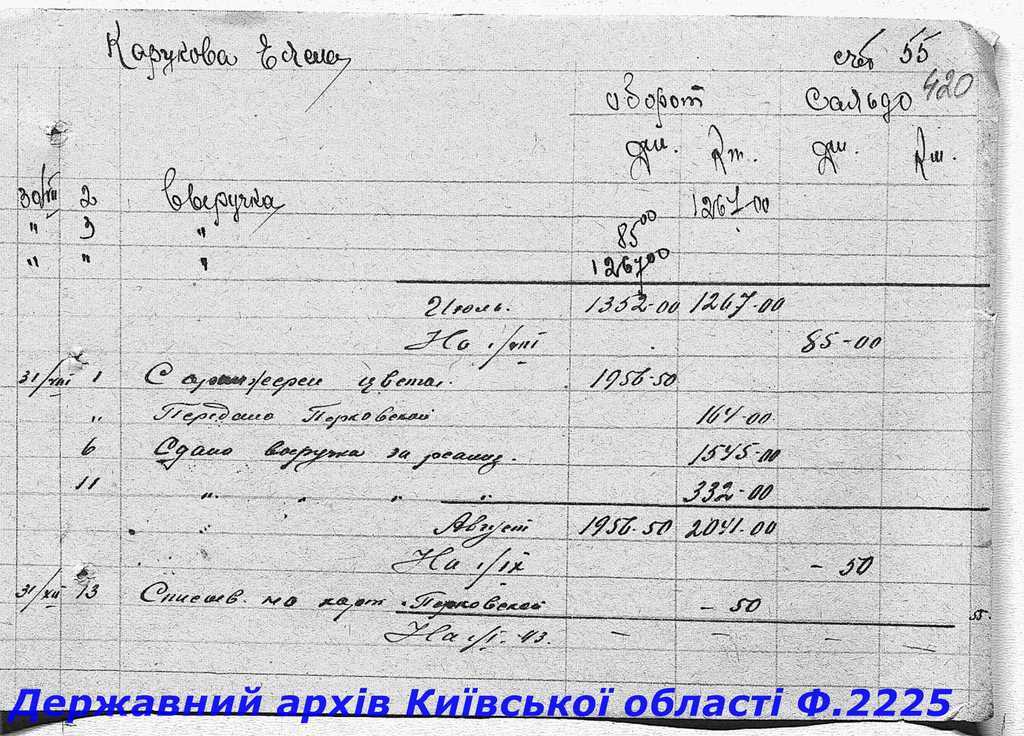 Карукова Елена счёт 55
420
оборот сальдо
Дт. Кт. Дт. Кт.
30/VII 2 Выручка 1267-00
" 3 " 85 00
" " " 1267 00
Июль. 1352-00 1267-00
На 1/VIII 85-00
31/VIII 1 С оранжереи цвета. 1956-50
" Передано Перковской 164-00
6 Сдано выручка за реализ. 1545-00
11 " " " " 332-00
Август 1956-50 2041-00
На 1/IX - 50
31/XII 13 Списыв. на карт. Перковской - 50
55.
На 1/I-43. - - -
Державний архів Київської області Ф.2225